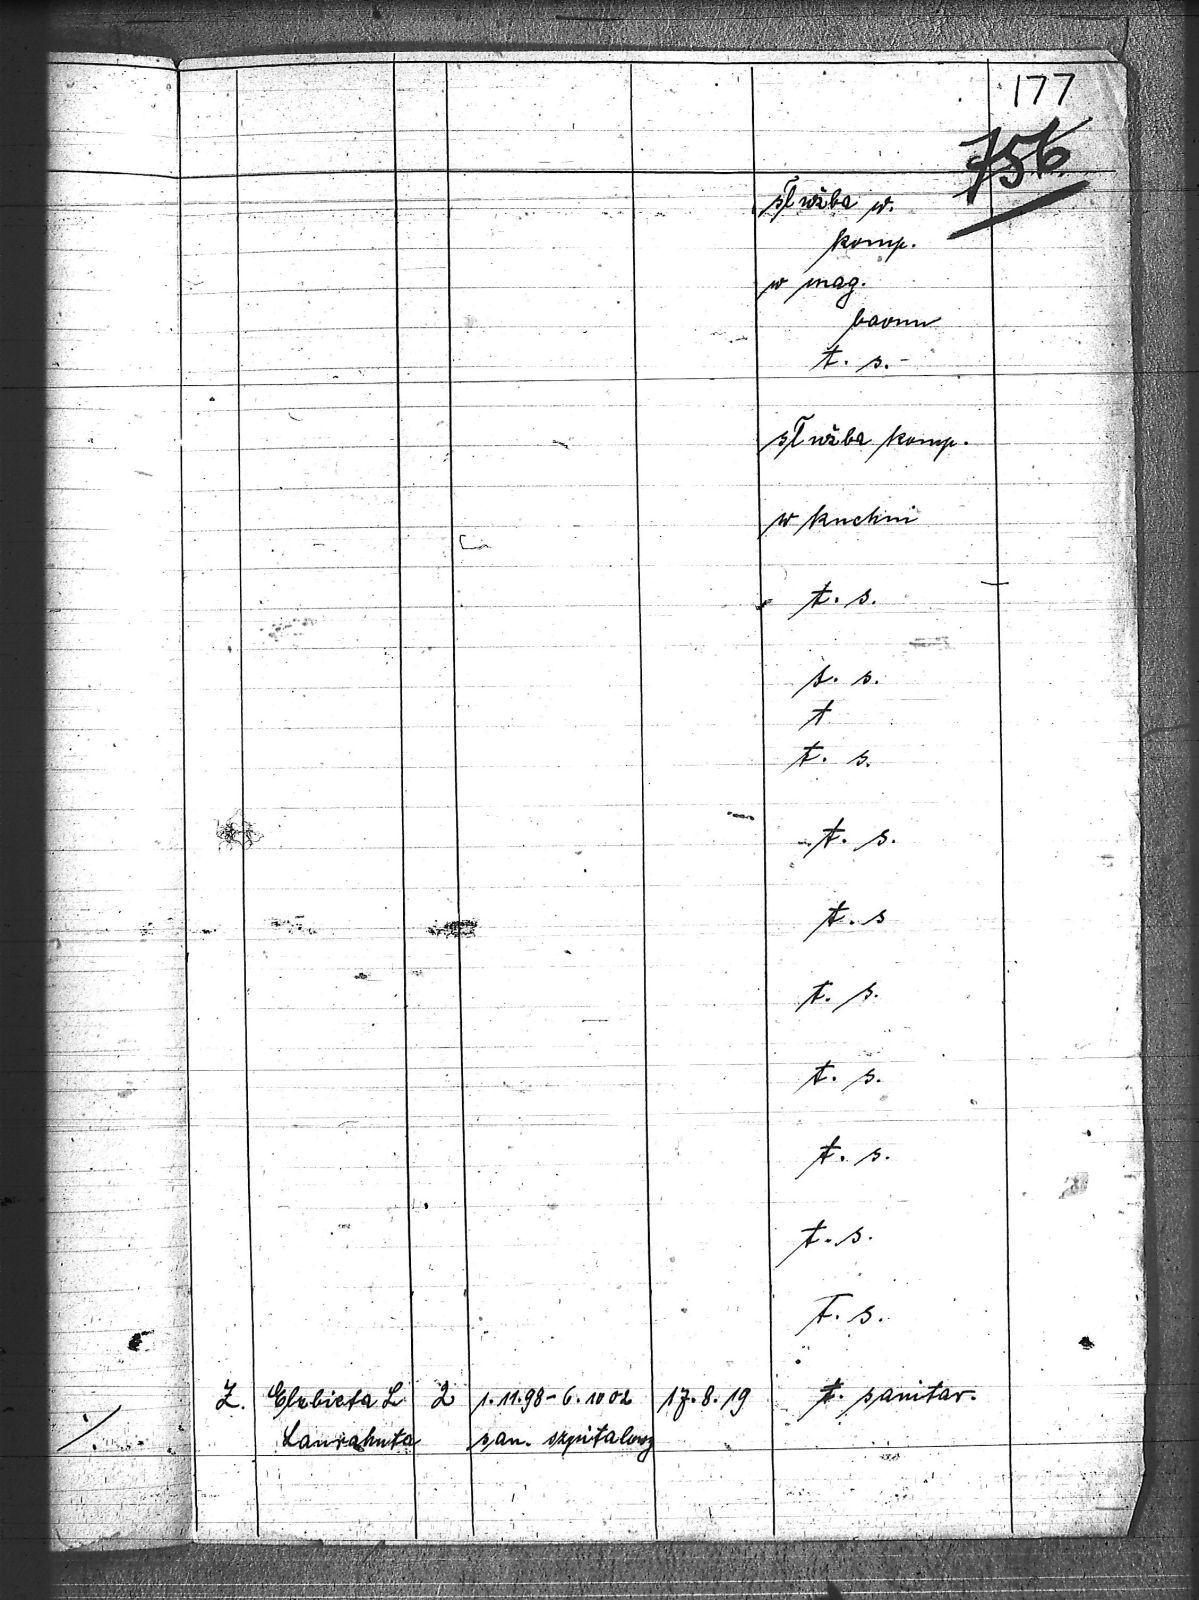 177
756.
służba w.
komp.
w mag.
baonu
t. s.-
służba komp.
w kuchni
t. s.
t. s.
t
t. s.
t. s.
t. s
t. s.
t. s.
t. s.
t. s.
T. s.
Ż. Elżbieta L 2 1.11.98-6.10 02 17.8.19 t. sanitar.
Laurahuta san. szpitalowy